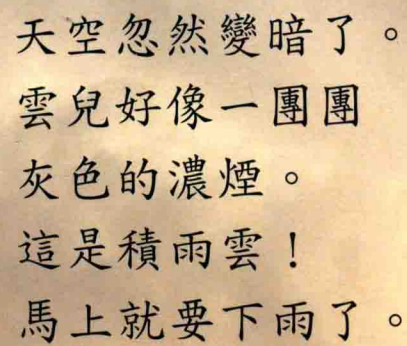 天空忽然變暗了。
雲兒好像一團團
灰色的濃煙。
這是積雨雲！
馬上就要下雨了。